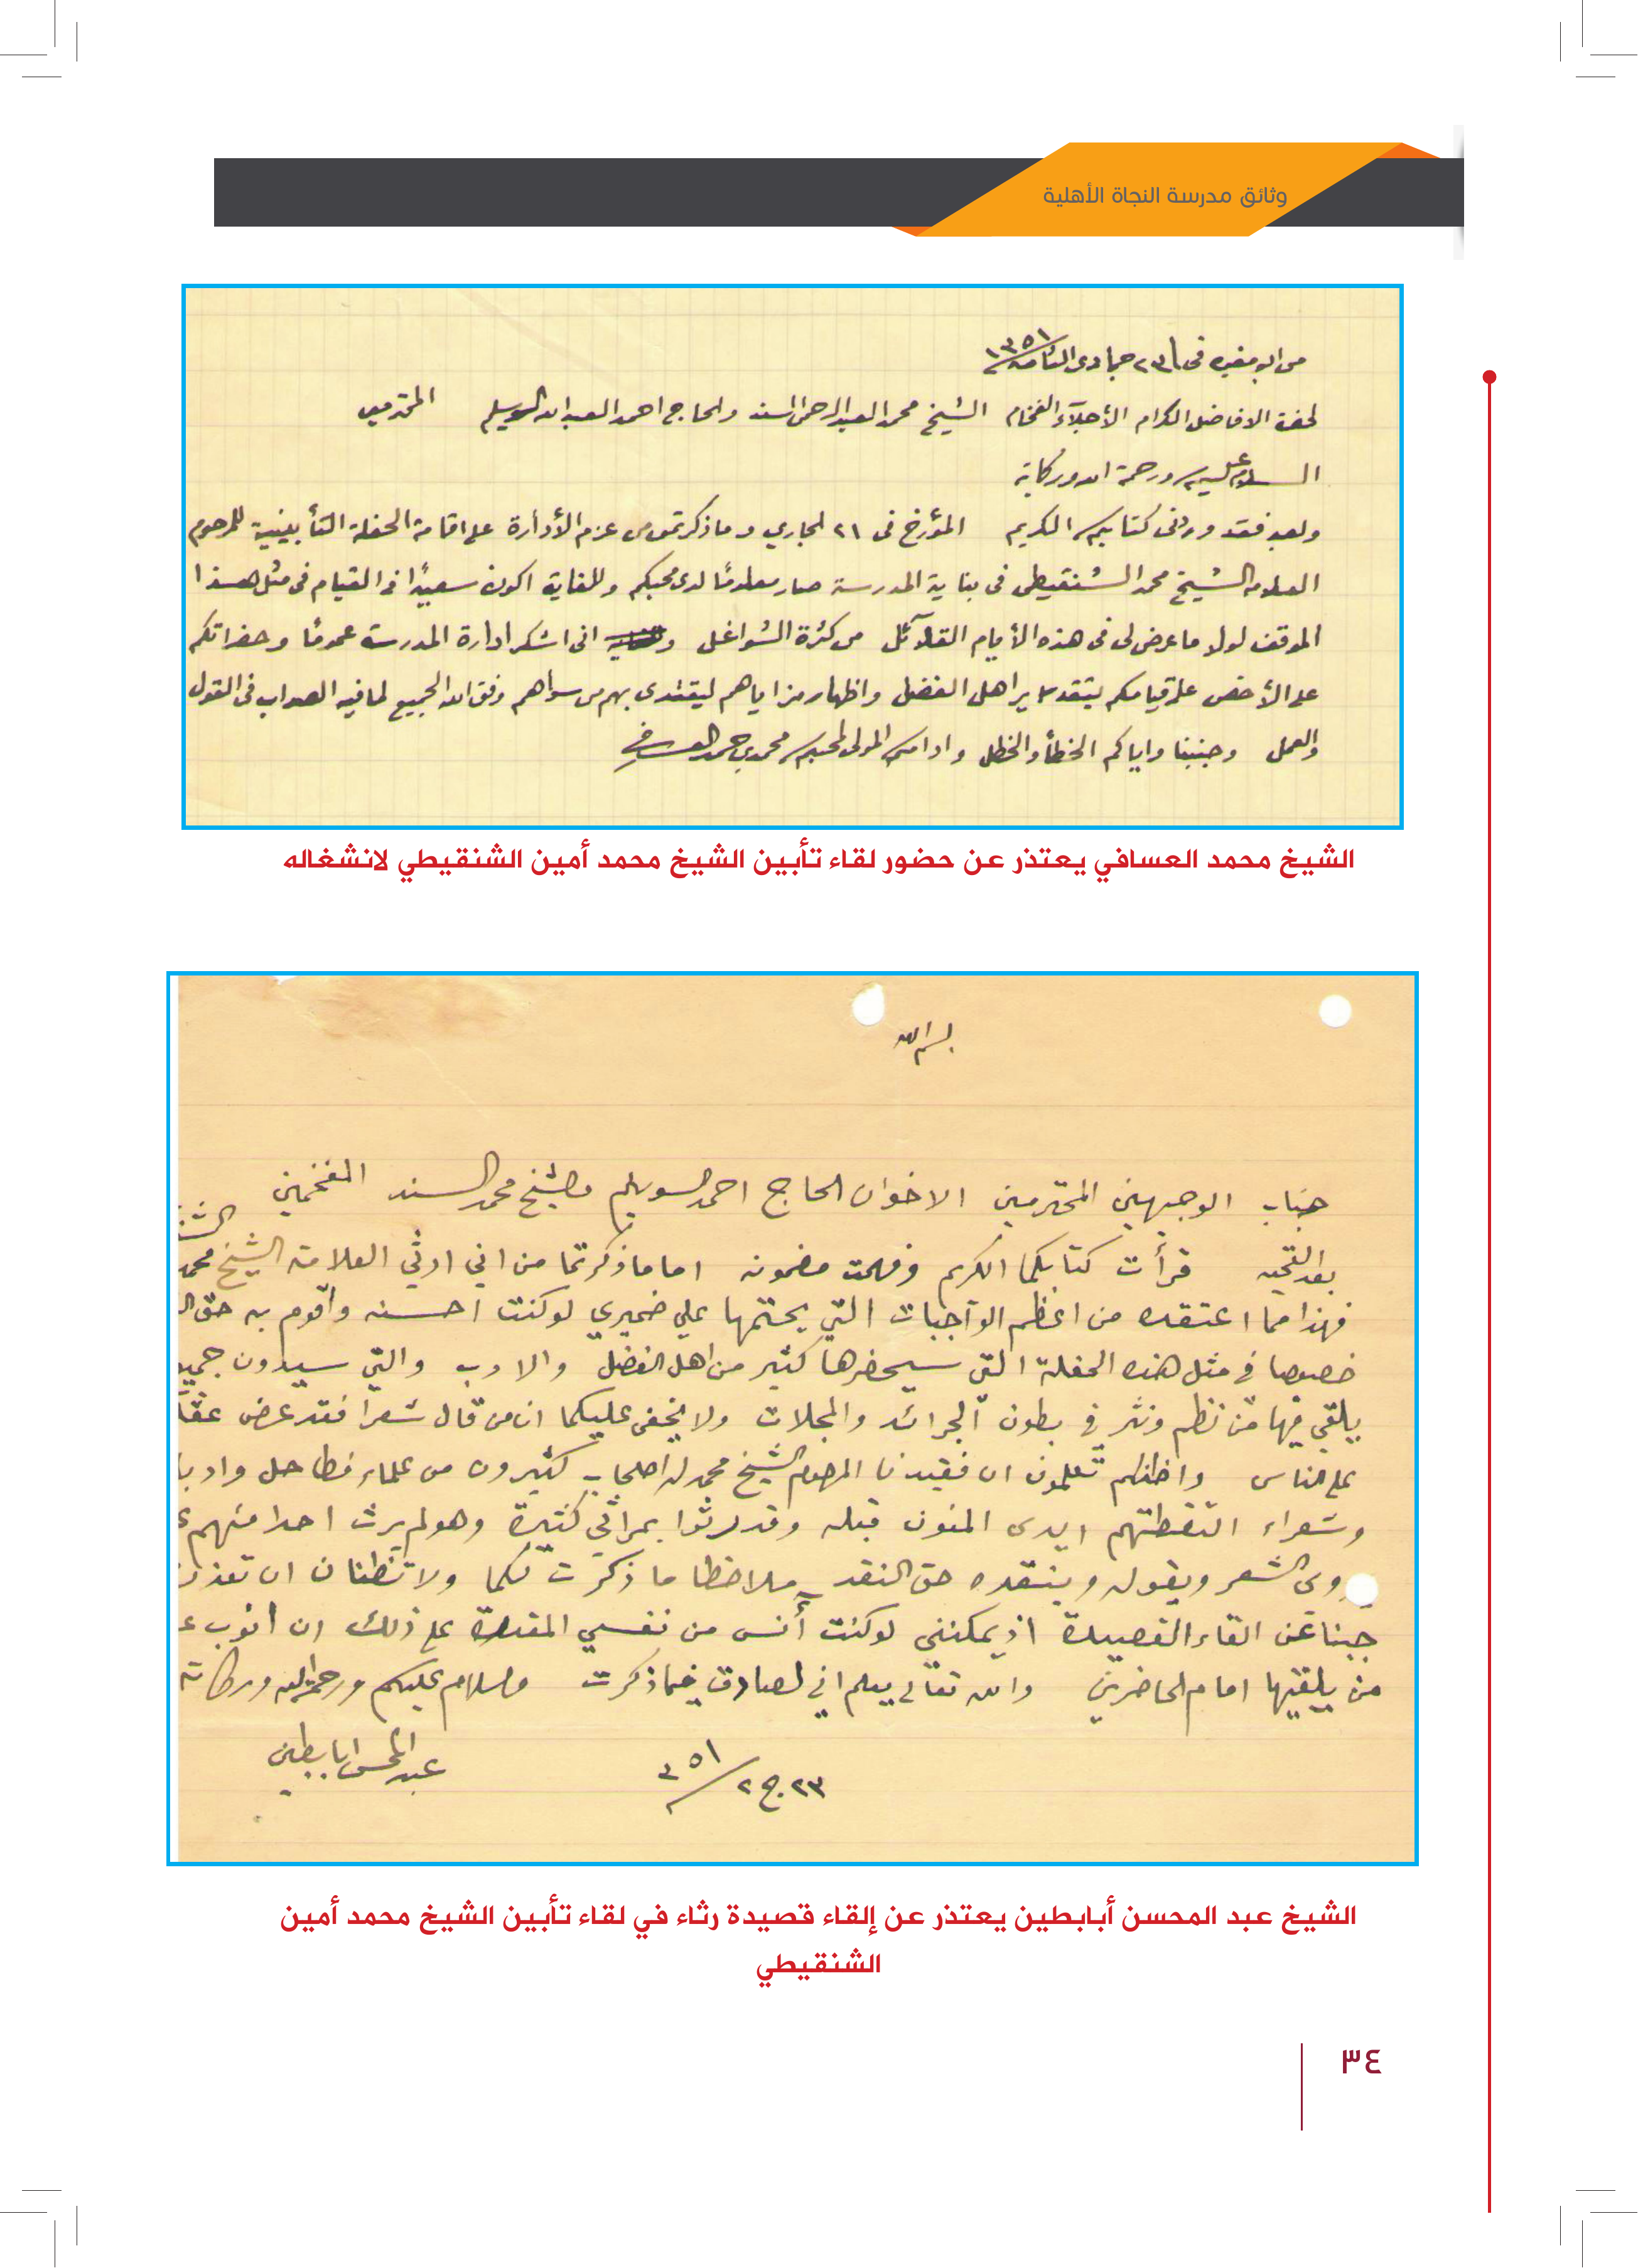 وثائق مدرسة النجاة الأهلية
من ابو مغيره في ٢٣ جمادى الثانية ١٣٥١
لحضرة الافاضل الكرام الأجلآء الفخام الشيخ محمد العبد الرحمن السند والحاج احمد العبد الله السويلم المحترمين
السلام عليكم ورحمة الله وبركاته
وبعد فقد وردني كتابكم الكريم المؤرخ في ٢١ الجاري وما ذكرتموه من عزم الأدارة على اقامة الحفلة التأبينية للمرحوم
العلامه الشيخ محمد الشنقيطي في بناية المدرسة صار معلومًا لدى محبكم وللغاية اكون سعيدًا في القيام في مثل هذا
الموقف لولا ما عرض لي في هذه الأيام القلآئل من كثرة الشواغل و اني اشكر ادارة المدرسة عمومًا وحضراتكم
على الأخص على قيامكم بتقدير اهل الفضل واظهار مزاياهم ليقتدى بهم من سواهم وفق الله الجميع لما فيه الصواب في القول
والعمل وجنبنا واياكم الخطأ والخطل وادامكم المولى لمحبكم محمد بن حمد العسافي
الشيخ محمد العسافي يعتذر عن حضور لقاء تأبين الشيخ محمد أمين الشنقيطي لانشغاله
بسم الله
جناب الوجيهين المحترمين الاخوان الحاج احمد السويلم والشيخ محمد السند المفخمين
بعد التحيه قرأت كتابكما الكريم وفهمت مضمونه اما ما ذكرتما من اني ارثي العلامة الشيخ محمد
فهذا مما اعتقده من اعظم الواجبات التي يحتمها علي ضميري لو كنت احسنه وأقوم به حق
خصوصا في مثل هذه الحفلة التي سيحضرها كثير من اهل الفضل والادب والتي سيدون جميع
يلقي فيها من نظم ونثر في بطون الجرائد والمجلات ولا يخفى عليكما ان من قال شعرا فقد عرض عقله
على الناس واظنكم تعلمون ان فقيدنا المرحوم الشيخ محمد له اصحاب كثيرون من علماء فطاحل وادبا
وشعراء التقطتهم ايدى المنون قبله وقد رثوا بمراثي كثيرة وهو لم يرث احدا منهم
يروي الشعر ويقوله وينتقده حق النقد ملاحظا ما ذكرت لكما ولا تظنان ان تعذري
جبنا عن القاء القصيدة اذ يمكنني لو كنت أنس من نفسي المقدرة على ذلك ان انوب
من يلقيها امام الحاضرين والله تعالى يعلم اني لصادق فيما ذكرت والسلام عليكم ورحمة الله وبركاته
٢٣ ج ٢ ٣٥١ عبد المحسن ابابطين
الشيخ عبد المحسن أبابطين يعتذر عن إلقاء قصيدة رثاء في لقاء تأبين الشيخ محمد أمين
الشنقيطي
٣٤